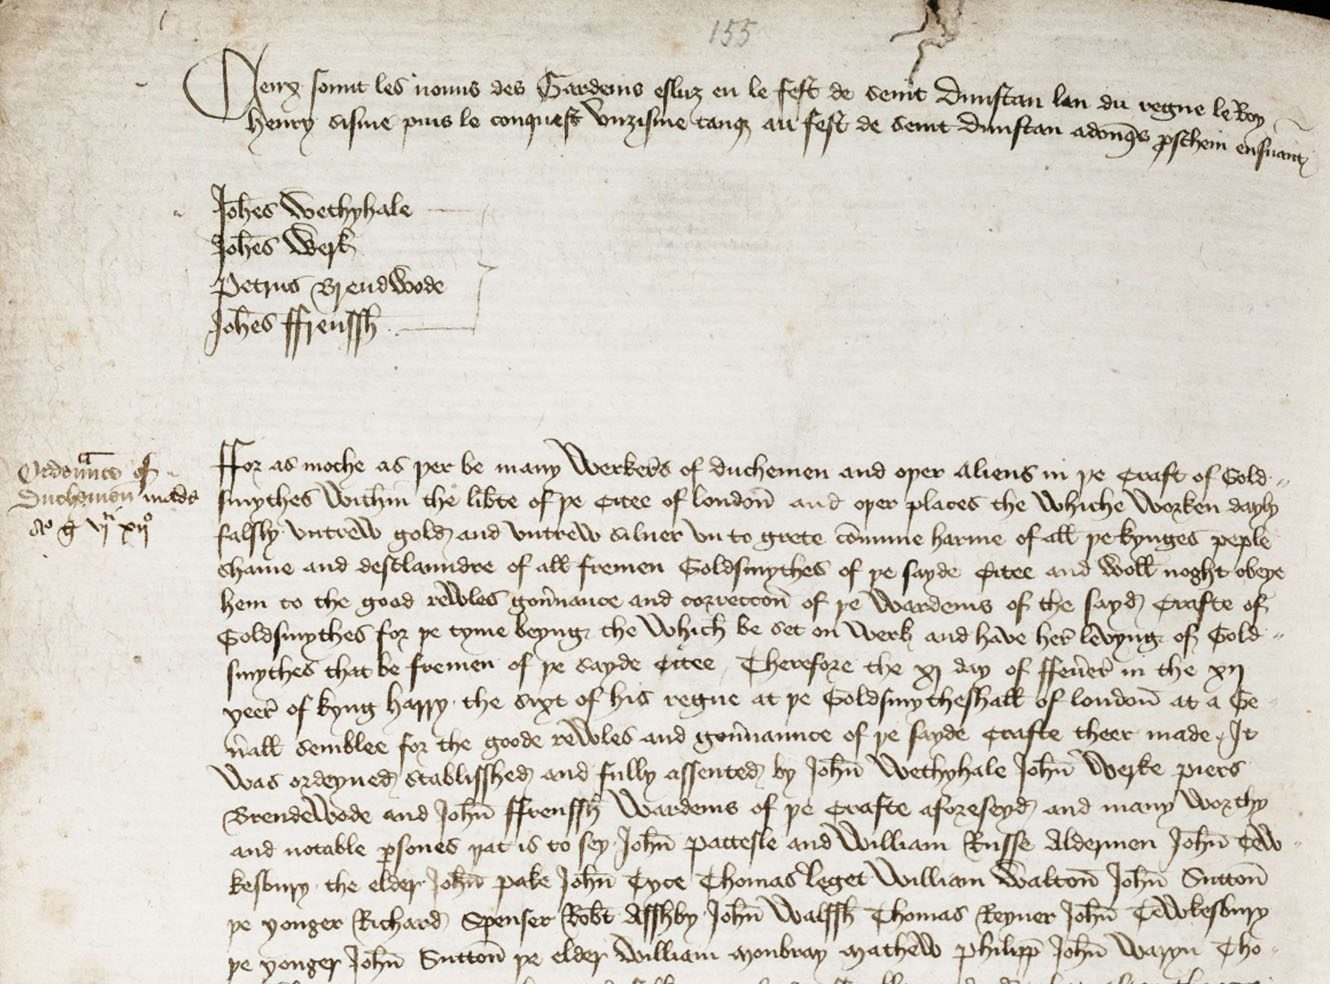 155
Ceux sount les nouns des Gardeins esluz en le fest de Seint Dunstan lan du regne le Roy
Henry sisme puis le conquest unzisme tanqz au fest de Seint Dunstan adonqs pschein ensuant
Johes Wethyhale
Johes Werk
Petrus Brendwode
Johes ffrenssh
Ordennce of
Duchemen made
Ao H vj xijo
ffor as moche as per be many Werkers of duchemen and oper Aliens in pe Craft of Gold
smythes Within the libte of pe Citee of london and oper places the Whiche Worken dayly
falsly untrew gold and untrew siluer un to grete comune harme of all pe kynges peple
shame and desclaundre of all fremen Goldsmythes of pe sayde Citee and Woll noght obeye
hem to the good reWles gounance and correccon of pe Wardeins of the sayd Crafte of
Goldsmythes for pe tyme beyng the Which be set on Werk and have her levyng of Gold
smythes that be fremen of pe sayde Citee Therefore the xj day of ffeuer in the xij
yeer of kyng harry the sixt of his regne at pe Goldsmytheshall of london at a Ge
nall semblee for the goode reWles and gounaunce of pe sayde Crafte theer made It
Was ordeyned stablisshed and fully assented by John Wethyhale John Werke piers
BrendeWode and John ffrenssh Wardeins of pe Crafte aforeseyd and many Worthy
and notable psones pat is to sey John pattesle and William Russe Aldermen John TeW
kesbury the elder John pake John Tyce Thomas leget William Walton John Sutton
pe yonger Richard Spenser Robt Asshby John Walssh Thomas Reyner John TeWkesbury
pe yonger John Sutton pe elder William Monbray MatheW philipp John Waryn Tho